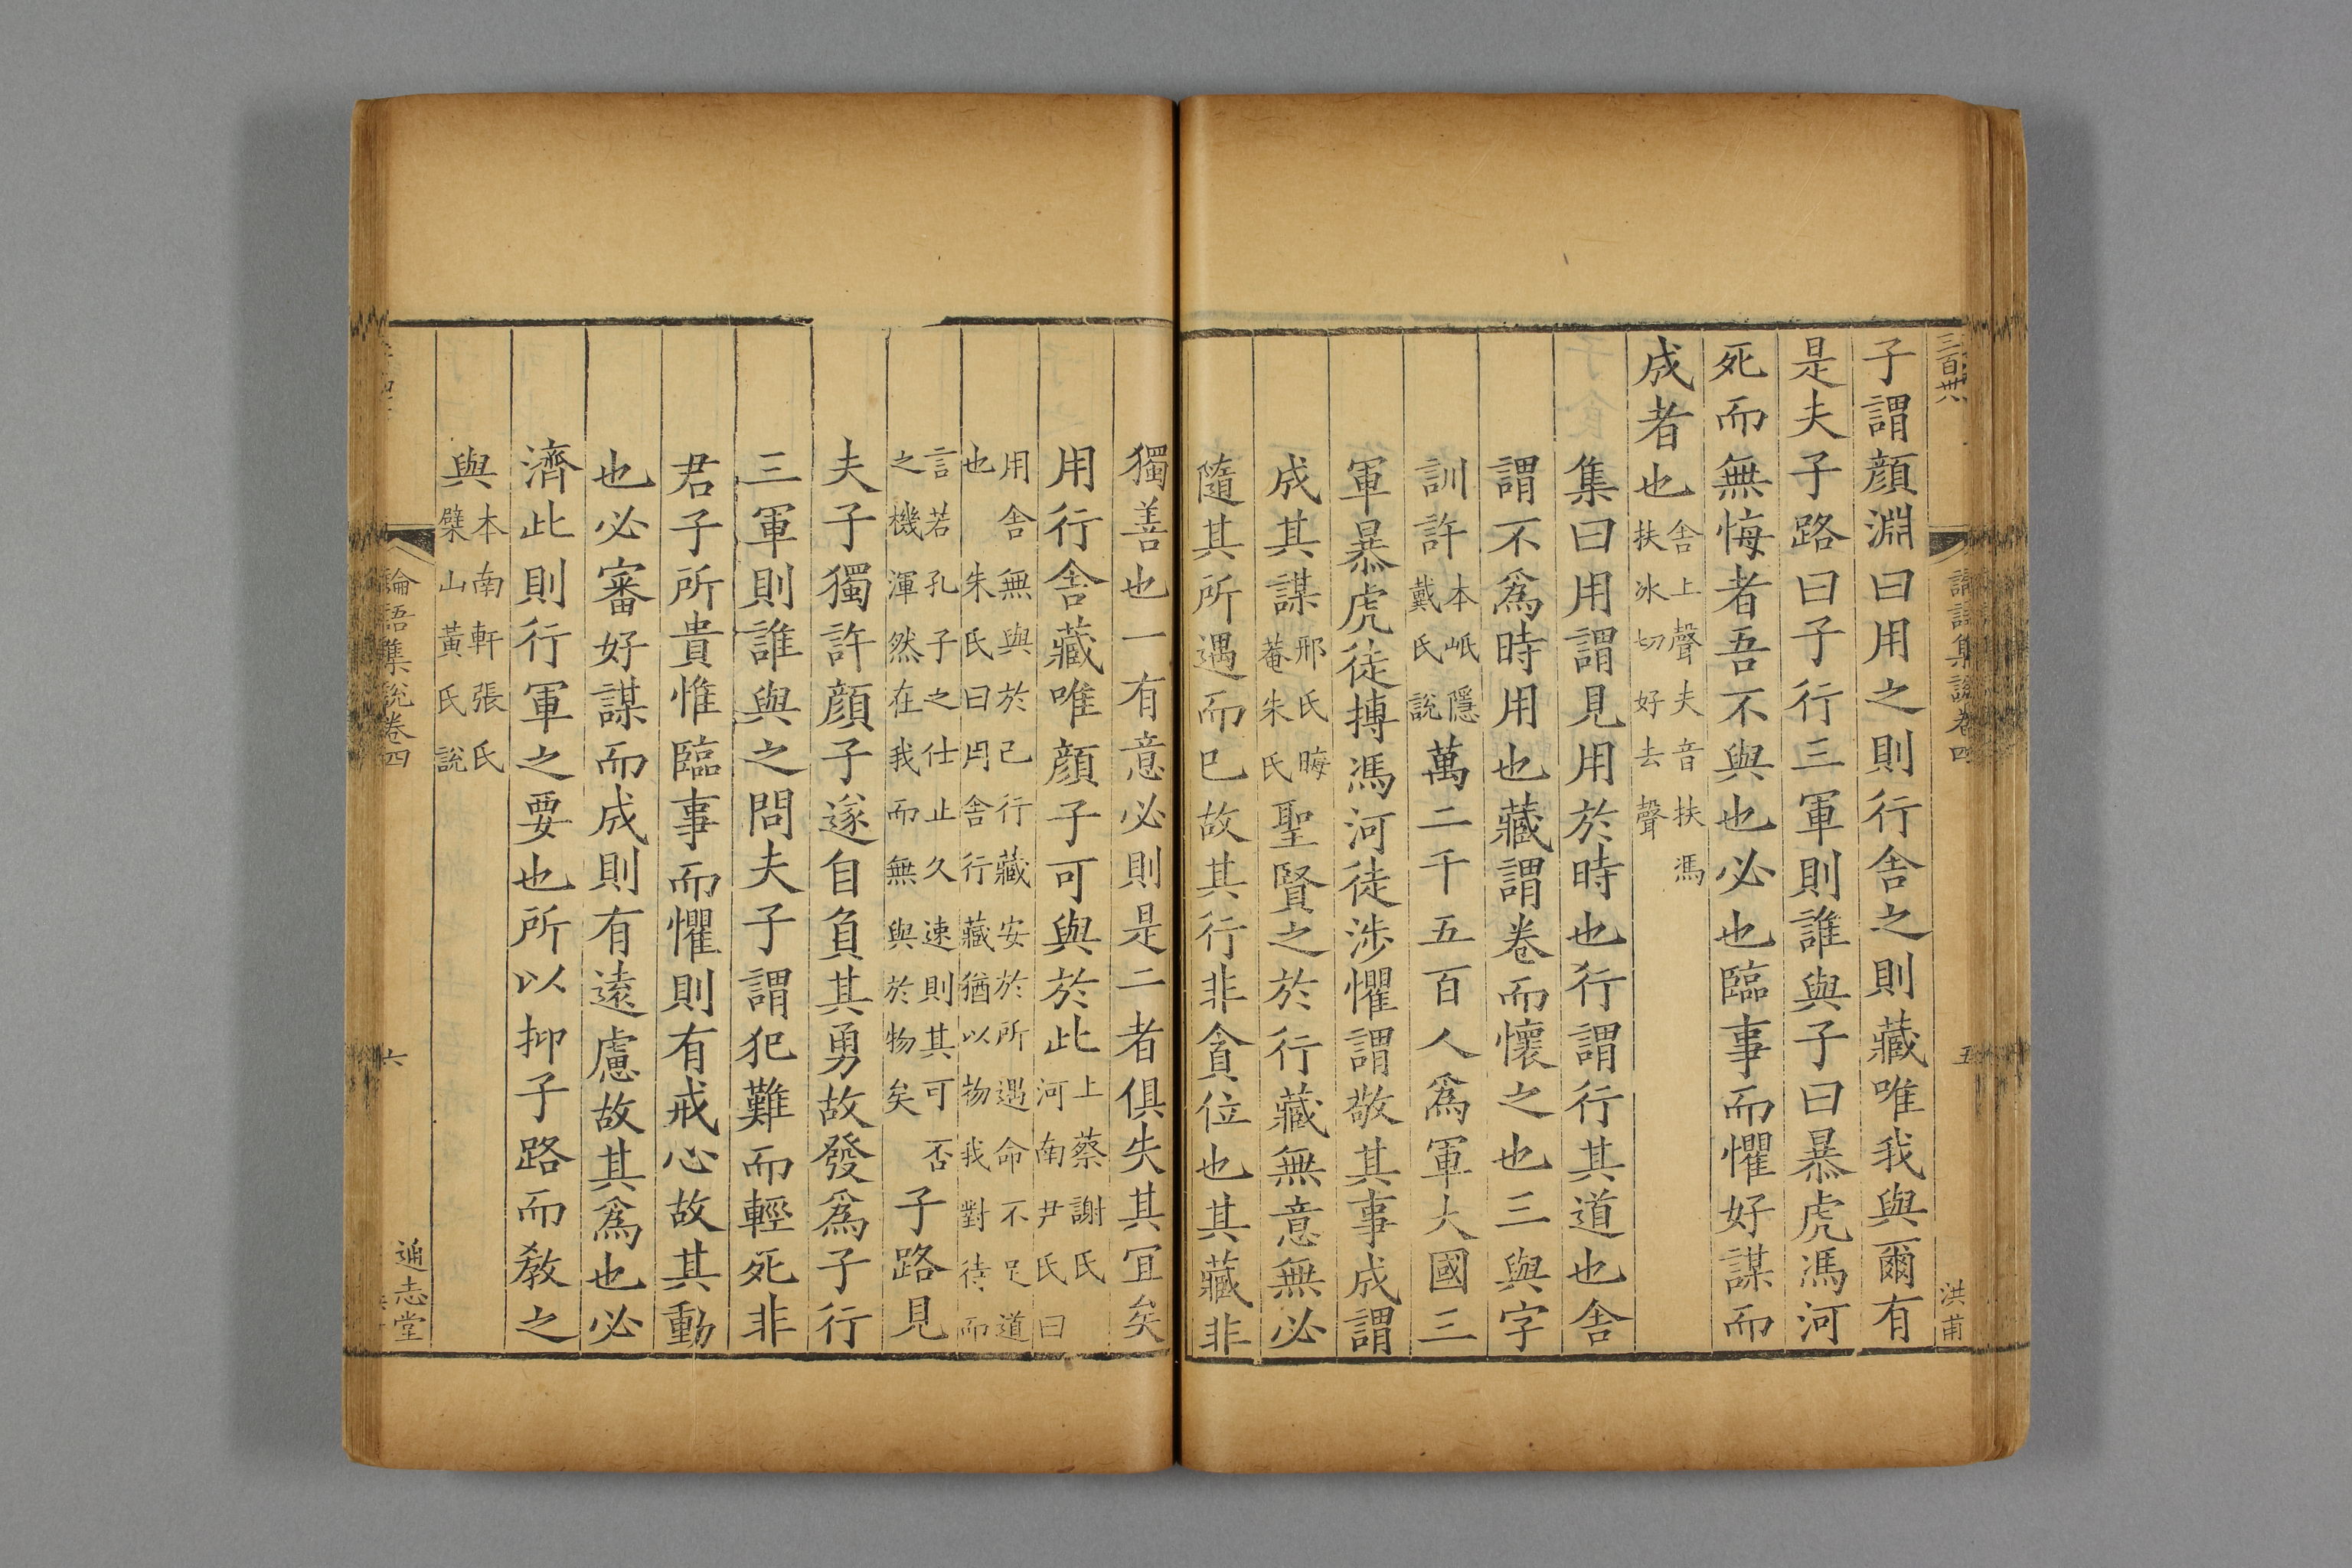 子謂顏淵曰用之則行舍之則藏唯我與爾有
是夫子路曰子行三軍則誰與子曰暴虎馮河
死而無悔者吾不與也必也臨事而懼好謀而
成者也舍上聲夫音扶馮扶冰切好去聲
集曰用謂見用於時也行謂行其道也舍
謂不爲時用也藏謂卷而懷之也三與字
訓許本岷隱戴氏說萬二千五百人爲軍大國三
軍暴虎徒搏馮河徒涉懼謂敬其事成謂
成其謀邢氏晦菴朱氏聖賢之於行藏無意無必
隨其所遇而已故其行非貪位也其藏非
獨善也一有意必則是二者俱失其宜矣
用行舍藏唯顏子可與於此上蔡謝氏河南尹氏曰
用舍無與於己行藏安於所遇命不足道也朱氏曰用舍行藏猶以物我對待而
言若孔子之仕止久速則其可否之機渾然在我而無與於物矣子路見
夫子獨許顏子遂自負其勇故發爲子行
三軍則誰與之問夫子謂犯難而輕死非
君子所貴惟臨事而懼則有戒心故其動
也必審好謀而成則有遠慮故其爲也必
濟此則行軍之要也所以抑子路而教之
與本南軒張氏檗山黃氏說
論語集說卷四
六
通志堂
三百卅
集說卷四
五
洪甫